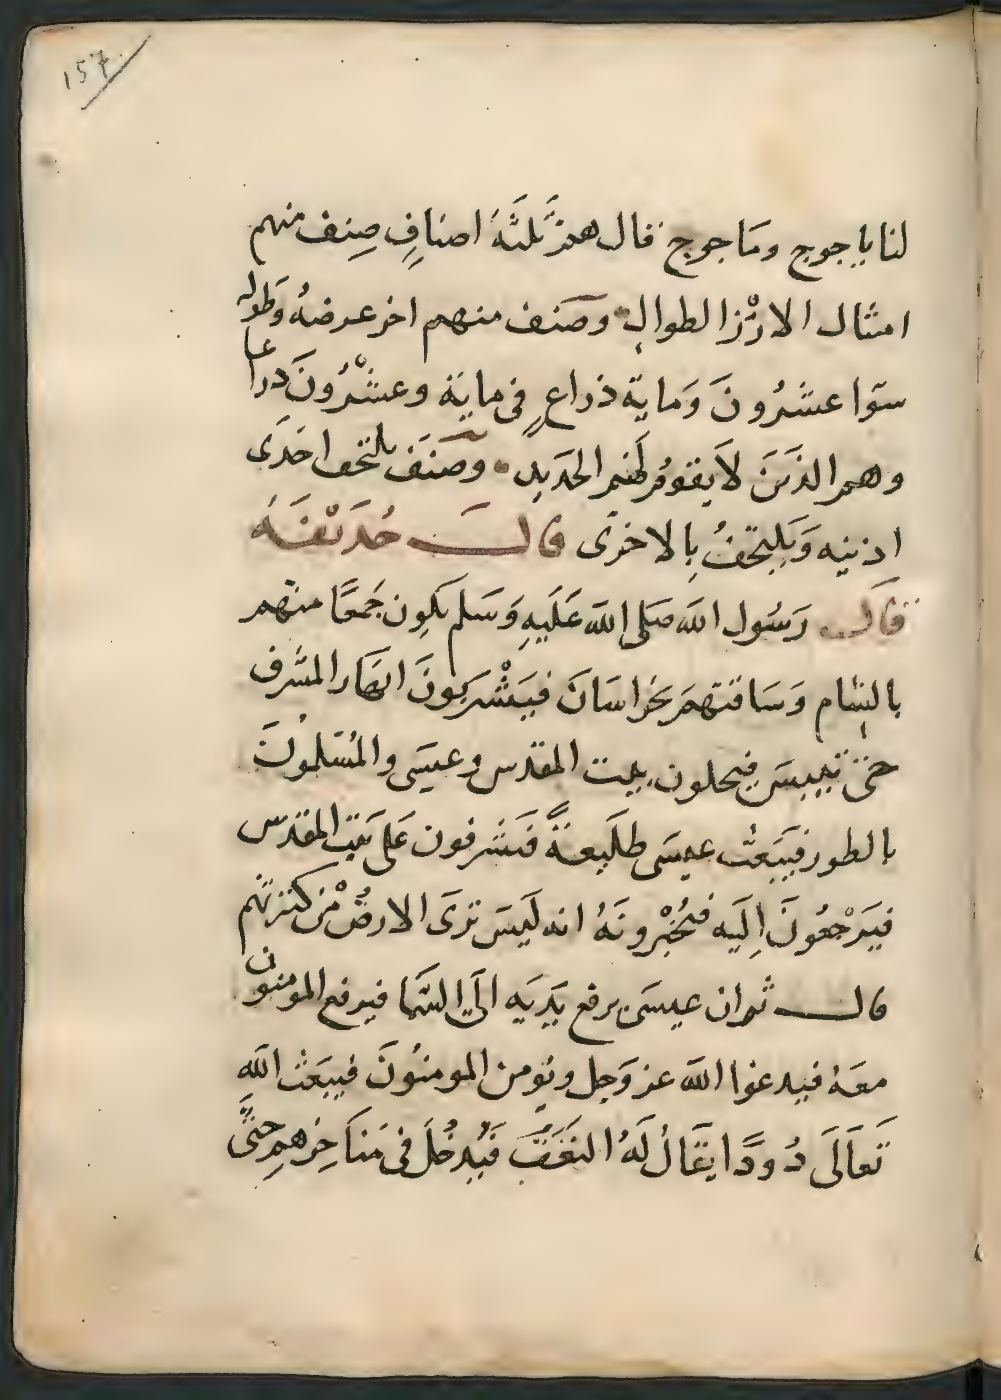 157
لنا ياجوج وماجوج قال هم ثلثة اصناف صنف منهم
امثال الارز الطوال وصنف منهم اخر عرضه وطوله
سوا عشرون ومايةُ ذراع في ماية وعشرون ذراعا
وهم الذين لا يقوم لهم الحديد وصنف يلتحف احدى
اذنيه ويلتحف بالاخرى قال حذيفة
قال رسول الله صلى الله عليه وسلم يكون جمعا منهم
بالشام وساقتهم بخراسان فيشربون انهار المشرق
حتى تيبس فيحلون بيت المقدس وعيسى والمسلمون
بالطور فيبعث عيسى طليعة فيشرفون على بيت المقدس
فيرجعون اليه فيخبرونه انه ليس ترى الارض من كثرتهم
قال ثم ان عيسى يرفع يديه الي السما فيرفع المومنون
معه فيدعوا الله عز وجل ويومن المومنون فيبعث الله
تعالى دودا يقال له النغف فيدخل في مناخرهم حتى